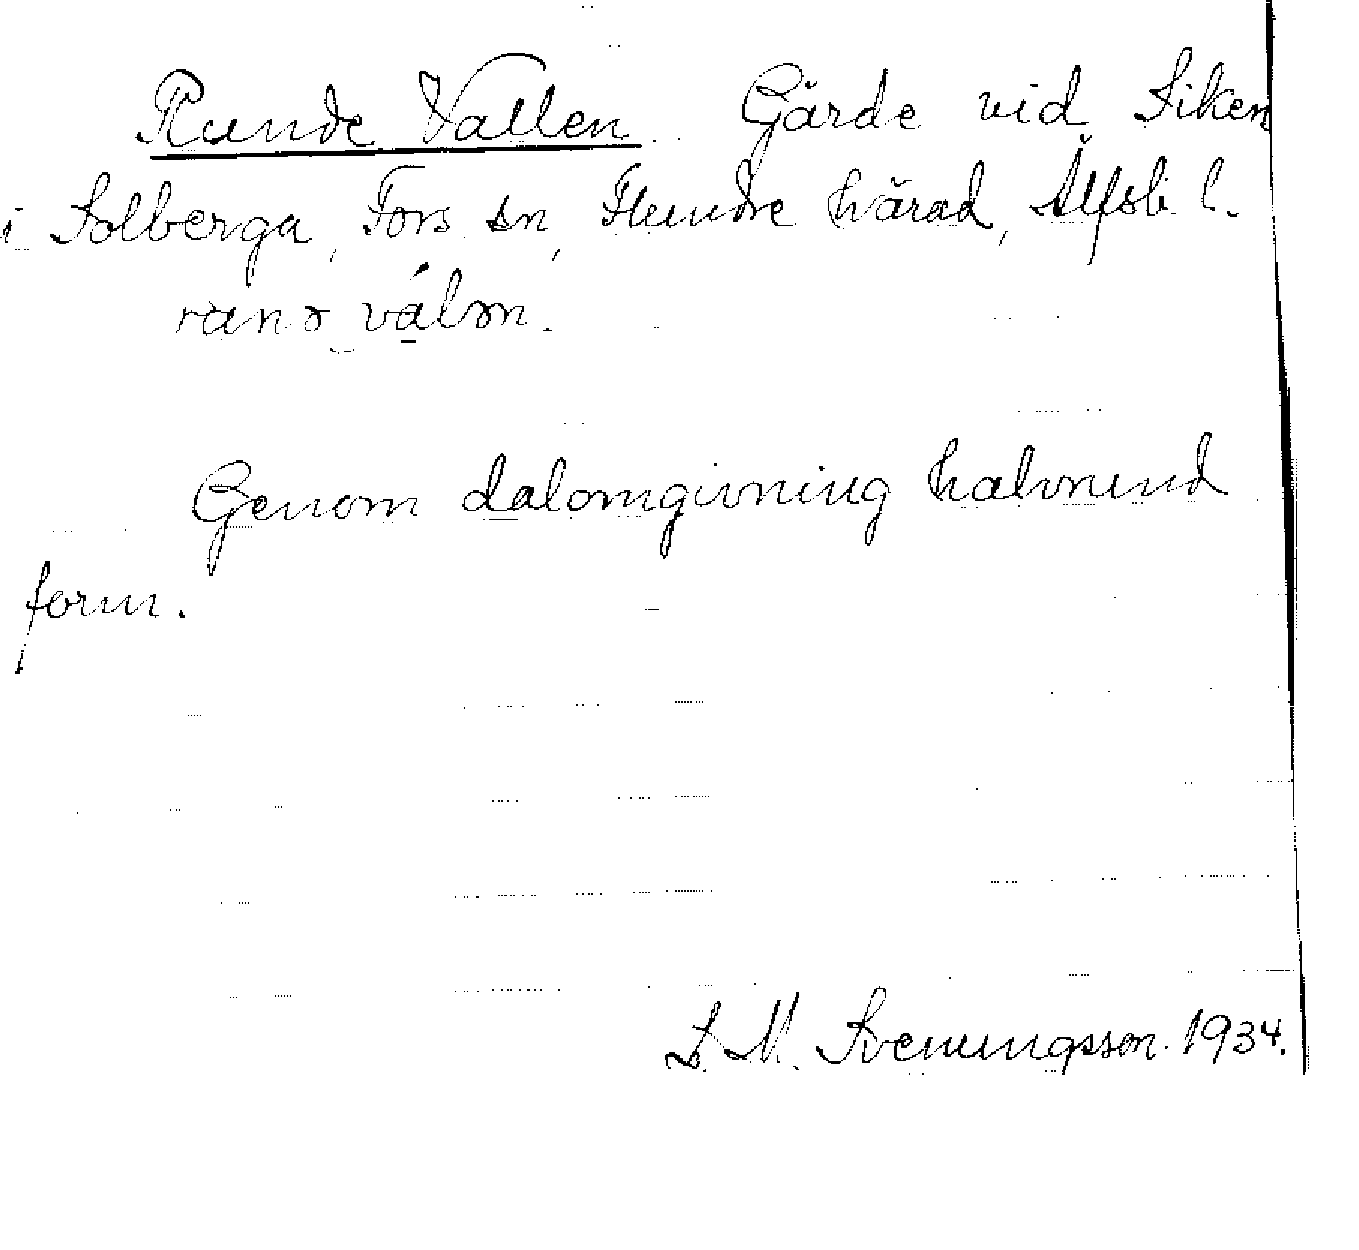 Runde Vallen. Gärde vid Siken
i Solberga, Fors sn, Flundre härad, Älfsb. l.
ranə válən.
Genom dalomgivning halvrund
form.
L. M. Svenungsson. 1934.